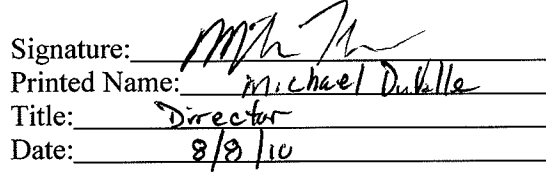 Signature:
Printed Name: Michael DuValle
Title: Director
Date: 8/8/10